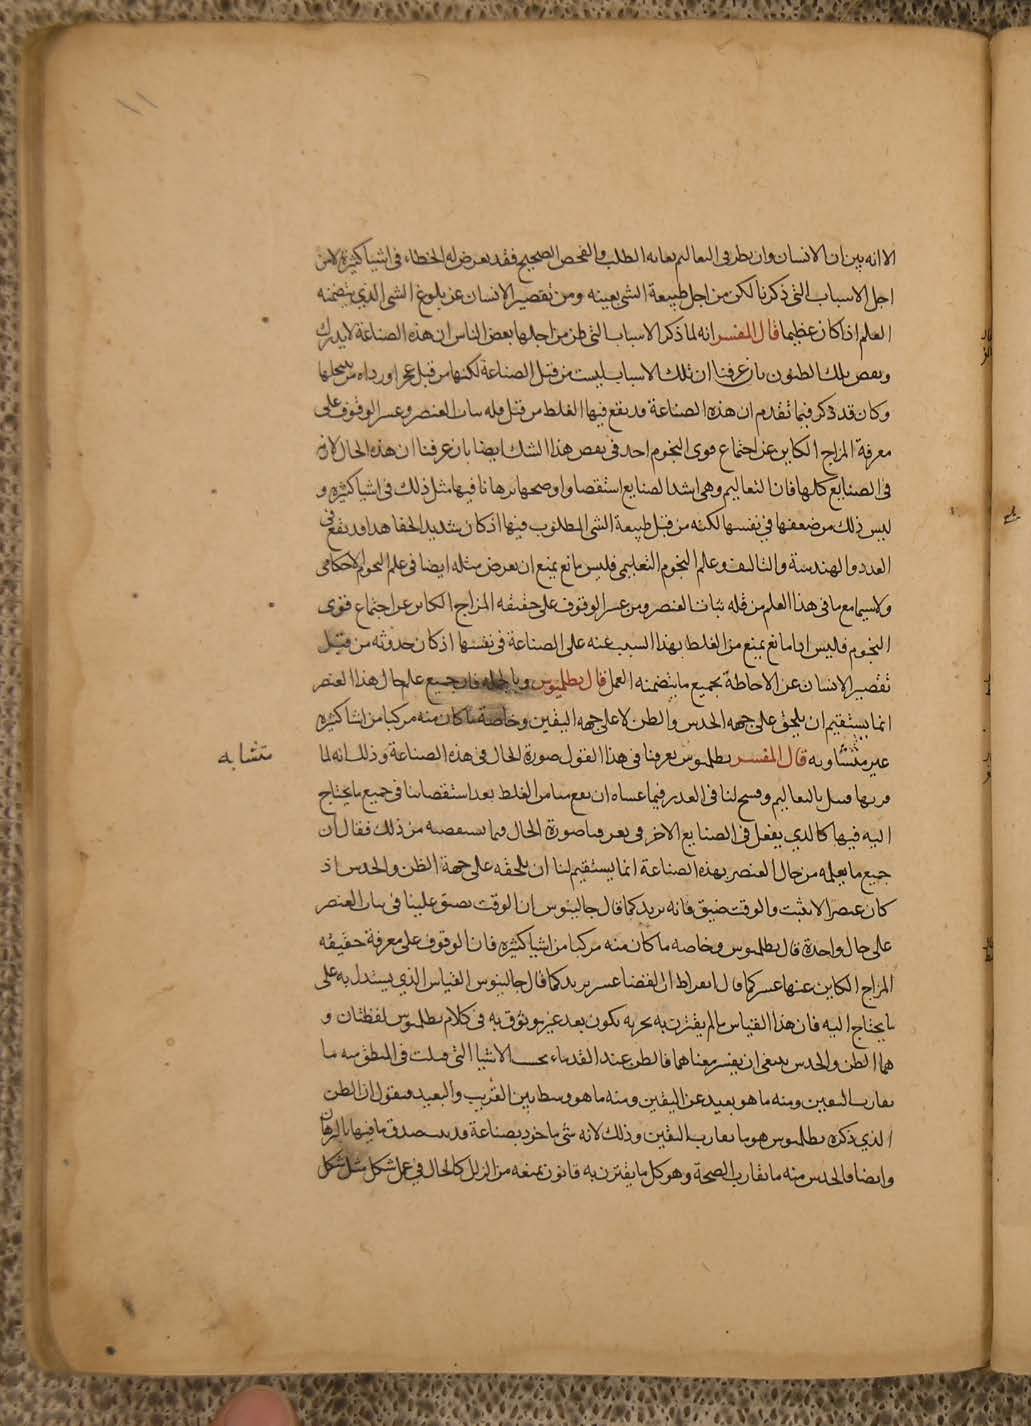 الا انه بين ان الانسان وان نظر في التعاليم بغاية الطلب والفحص الصحيح فقد يعرض له الخطاء في اشيا كثيرة لا من
اجل الاسباب التي ذكرنا لكن من اجل طبيعة الشي بعينه ومن تقصير الانسان عن بلوغ الشي الذي يتضمنه
العلم اذا كان عظيما قال المفسر انه لما ذكر الاسباب التي ظن من اجلها بعض الناس ان هذه الصناعة لا يدرك
ونقض تلك الظنون بان عرفنا ان تلك الاسباب ليست من قبل الصناعة لكنها من قبل
وكان قد ذكر فيما تقدم ان هذه الصناعة قد يقع فيها الغلط من قبل قله ثبات العنصر وعسر الوقوف على
معرفة المزاج الكاين عن اجتماع قوى النجوم اخد في نقض هذا الشك ايضا بان عرفنا ان هذه الحال لازمة
في الصنايع كلها فان التعاليم وهي اشد الصنايع استقصا واوضحها برهانا فيها مثل ذلك في اشيا كثيرة و
ليس ذلك من ضعفها في نفسها لكنه من قبل طبيعة الشي المطلوب فيها اذ كان شديد الخفا هدا وقد يقع في
العدد والهندسة والتاليف وعلم النجوم التعليمي فليس مانع يمنع ان يعرض مثله ايضا في علم النجوم الاحكامي
ولاسيما مع ما في هذا العلم من قله ثبات العنصر ومن عسر الوقوف على حقيقه المزاج الكاين عن اجتماع قوى
النجوم فليس اذا مانع يمنع من الغلط بهذا السبب عينه على الصناعة في نفسها اذ كان حدوثه من قبل
تقصير الانسان عن الاحاطة بجميع ما يتضمنه العمل قال بطلميوس وبالجمله فان جميع علم حال هذا العنصر
انما يستقيم ان يلحق على جهه الحدس والظن لا على جهه اليقين وخاصة ما كان منه مركبا من اشيا كثيرة
غير متشاوبه قال المفسر بطلميوس يعرفنا في هذا القول صورة الحال في هذه الصناعة وذلك انه لما
متشابه
قرنها قبل بالتعاليم وفسح لنا في العدر فيما عساه ان يقع منا من الغلط بعد استقصاينا في جميع ما يحتاج
اليه فيها كالدي يفعل في الصنايع الاخر صورة الحال فيما من ذلك فقال ان
جميع ما يعلمه من حال العنصر بهذه الصناعة انما يستقيم لنا ان يلحقه على جهة الظن والحدس اذ
كان عنصرا لا يثبت والوقت ضيق فانه يريد كما قال جالينوس ان الوقت يضيق علينا في ثبات العنصر
على حال واحدة قال بطلميوس وخاصه ما كان منه مركبا من اشيا كثيرة فان الوقوف على معرفة حقيقه
المزاج الكاين عنها عسر كما قال ابقراط ان القضا عسر يريد كما قال جالينوس القياس الذي يستدل به على
ما يحتاج اليه فان هذا القياس ما لم يقترن به تجربه يكون بعد غير موثوق به في كلام بطلميوس لفظتان و
هما الظن والحدس ينبغي ان يفسر معناهما فالظن عند القدماء بحسب الاشيا التي قيلت في المنطق منه ما
يقارب اليقين ومنه ما هو بعيد عن اليقين ومنه ما هو وسطا بين القريب والبعيد فنقول ان الظن
الذي ذكره بطلميوس هو ما يقارب اليقين وذلك لانه شي ماخود بصناعة قد يبين صدق ما فيها بالبرهان
وايضا فالحدس منه ما يقارب الصحة وهو كل ما يقترن به قانون يمنعه من الزلل كالحال في عمل شكل مثل شكل